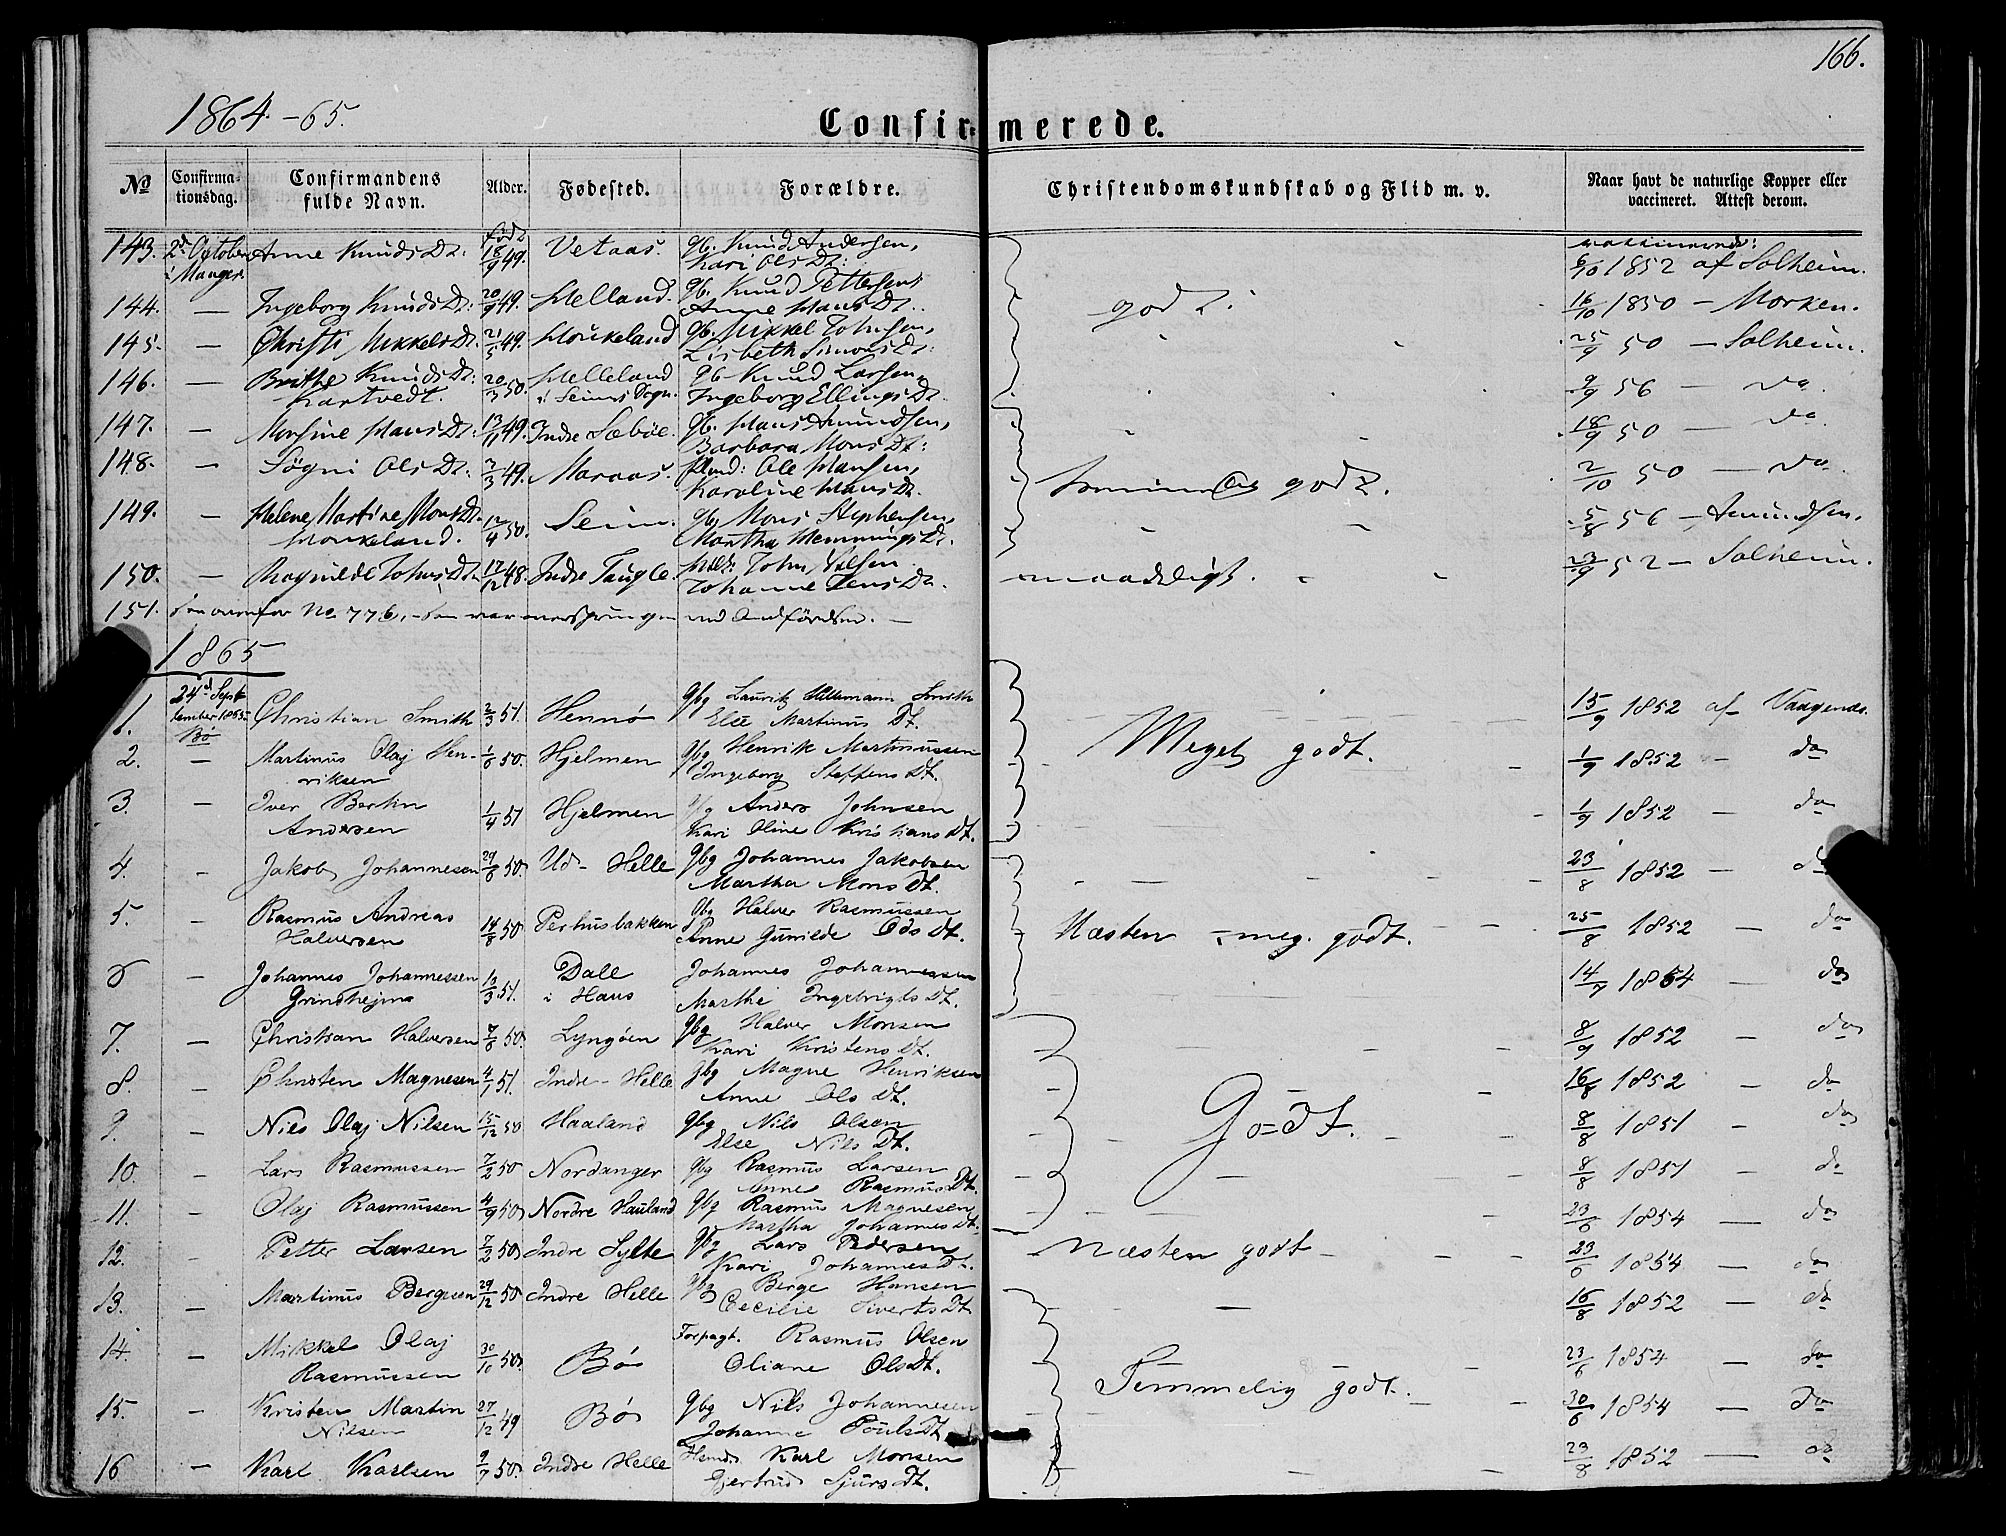 166.
1864-65.
Confirmerede.
No
Confirmationsdag.
Confirmandens fulde Navn.
Alder.
Fødested.
Forældre.
Christendomskundskab og Flid m. v.
Naar havt de naturlige Kopper eller vaccineret. Attest derom.
143. 2d October i Manger Anne Knuds Dt: født 18/9 49. Vetaas. Gb. Knud Andersen, Kari Ols Dt: vaccinerede: 6/10 1852 af Solheim.
144. — Ingeborg Knuds Dt: 20/9 49. Helland. Gb. Knud Pettersen, Anne Hans Dt. godt. 16/10 1850 — Morken.
145. — Christi Mikkels Dt. 21/5 49. Houkeland Gb. Mikkel Johnsen, Lisbeth Simons Dt: 25/9 50 — Solheim.
146. — Brithe Knuds Dt: Kartvedt. 20/3 50. Helleland i Seims Sogn. Gb. Knud Larsen, Ingeborg Ellings Dt. 9/9 56 — do.
147. — Monsine Hans Dt: 13/11 49. Indre Sæbøe. Gb. Hans Amundsen, Barbara Mons Dt: 18/9 50 — do
148. — Søgni Ols Dt: 3/3 49. Maraas. Ole Hansen, Karoline Hans Dt. Temmelig godt. 2/10 50 — do.
149. — Helene Martine Mons Dt. Houkeland. 12/4 50. Seim. Gb. Mons Stephensen, Martha Hemmings Dt. 5/8 56 — Amundsen.
150. — Ragnilde Johns Dt. 17/12 48. Indre Taugle. John Nilsen Johanne Jens Dt. maadeligt. 23/9 52 — Solheim.
151. ovenfor No. 776, som var oversprungen ved Indførelsen. —
1865
1. 24d September 1865 Bø Christian Smith 2/3 51. Hennø Gbg Lauritz Smith Else Martinus Dt. 15/9 1852 af Vaagenes.
2. — Martinus Olaj Henriksen 1/6 50. Hjelmen Gbg Henrik Martinussen Ingeborg Steffens Dt. Meget godt. 1/9 1852 — do
3. — Iver Bertin Andersen 1/4 51 Hjelmen Gbg Anders Johnsen Kari Oline Kristians Dt. 1/9 1852 — do
4. — Jakob Johannesen 29/6 50. Ud-Helle Gbg Johannes Jakobsen Martha Mons Dt. 23/8 1852 — do
5. — Rasmus Andreas Halversen 14/8 50 Perhusbakken Gbg Halver Rasmussen Anne Gunilde Ods Dt. Næsten meg. godt. 25/8 1852 — do
6 — Johannes Johannessen Grindhejm 13/3 51. Dale i Haus Johannes Johannessen Marthe Ingebrigts Dt. 14/7 1854 do
7. — Christian Halversen 7/6 50. Lyngøen Gbg Halver Monsen Kari Kristens Dt. 8/9 1852 — do
8. — Christen Magnesen 4/1 51. Indre-Helle Gbg Magne Henriksen Anne Ols Dt. 16/8 1852 — do
9. — Nils Olaj Nilsen 15/12 50 Haaland Gbg Nils Olsen Else Nils Dt. Godt. 8/8 1851 — do
10. — Lars Rasmussen 7/2 50 Nordanger Gbg Rasmus Larsen Anne Rasmus Dt. 8/8 1851 — do
11. — Olaj Rasmussen 4/9 50 Nordre Hauland Gbg Rasmus Magnesen Martha Johannes Dt. 23/6 1854 — do
12. — Petter Larsen 7/2 50 Indre Sylte Gbg Lars Pedersen Kari Johannes Dt. Næsten godt 23/6 1854 — do
13. — Martinus Bergesen 29/12 50 Indre Helle Gbg Berge Hansen Cecilie Siverts Dt 16/8 1852 — do
14. — Mikkel Olaj Rasmussen 30/10 50. Bø Forpagt. Rasmus Olsen Oliane Ols Dt. 23/6 1854 — do
15. — Kristen Martin Nilsen 27/12 49 Bø Gbg Nils Johannesen Johanne Pouls Dt. Temmelig godt. 30/6 1854 — do
16 — Karl Karlsen 9/7 50. Indre Helle Karl Monsen Gjertrud Sjurs Dt. 23/8 1852 — do